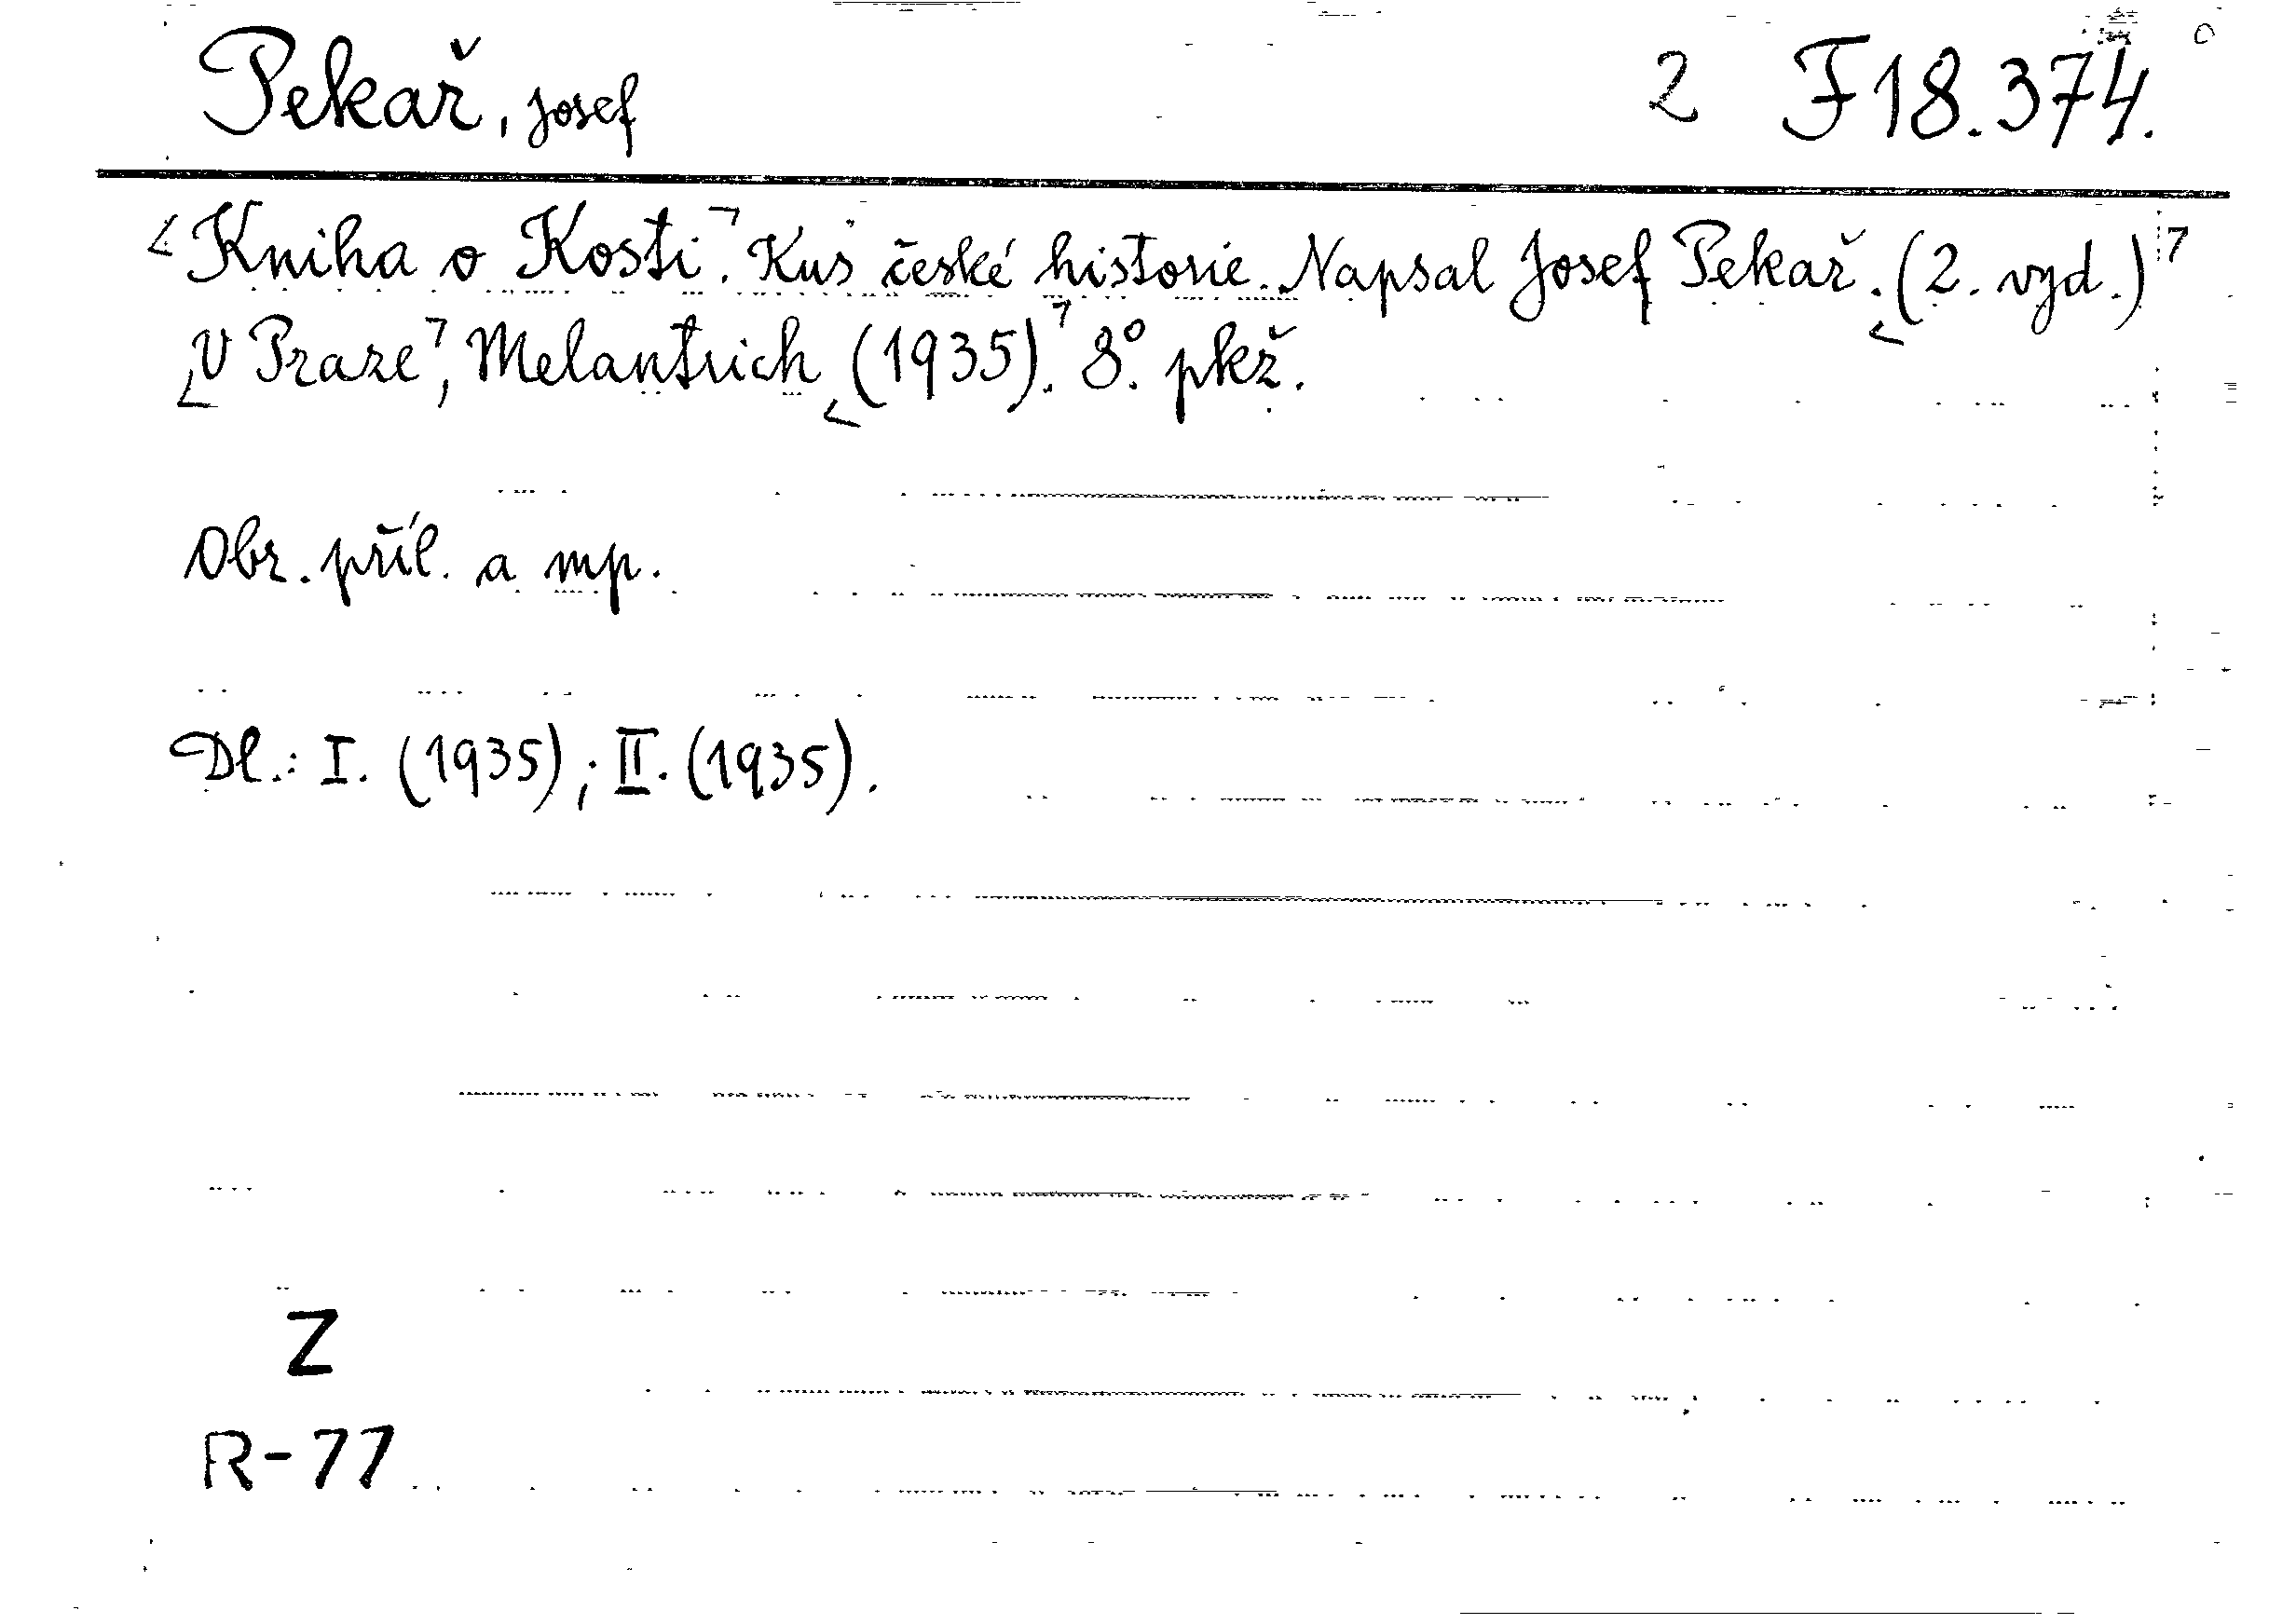 Pekař, Josef 2 F 18.374.
Kniha o Kosti. Kus české historie. Napsal Josef Pekař. (2. vyd.)
V Praze, Melantrich (1935). 8°. pkž.
Obr. příl. a mp.
Dl.: I. (1935); II. (1935).
Z
R-77